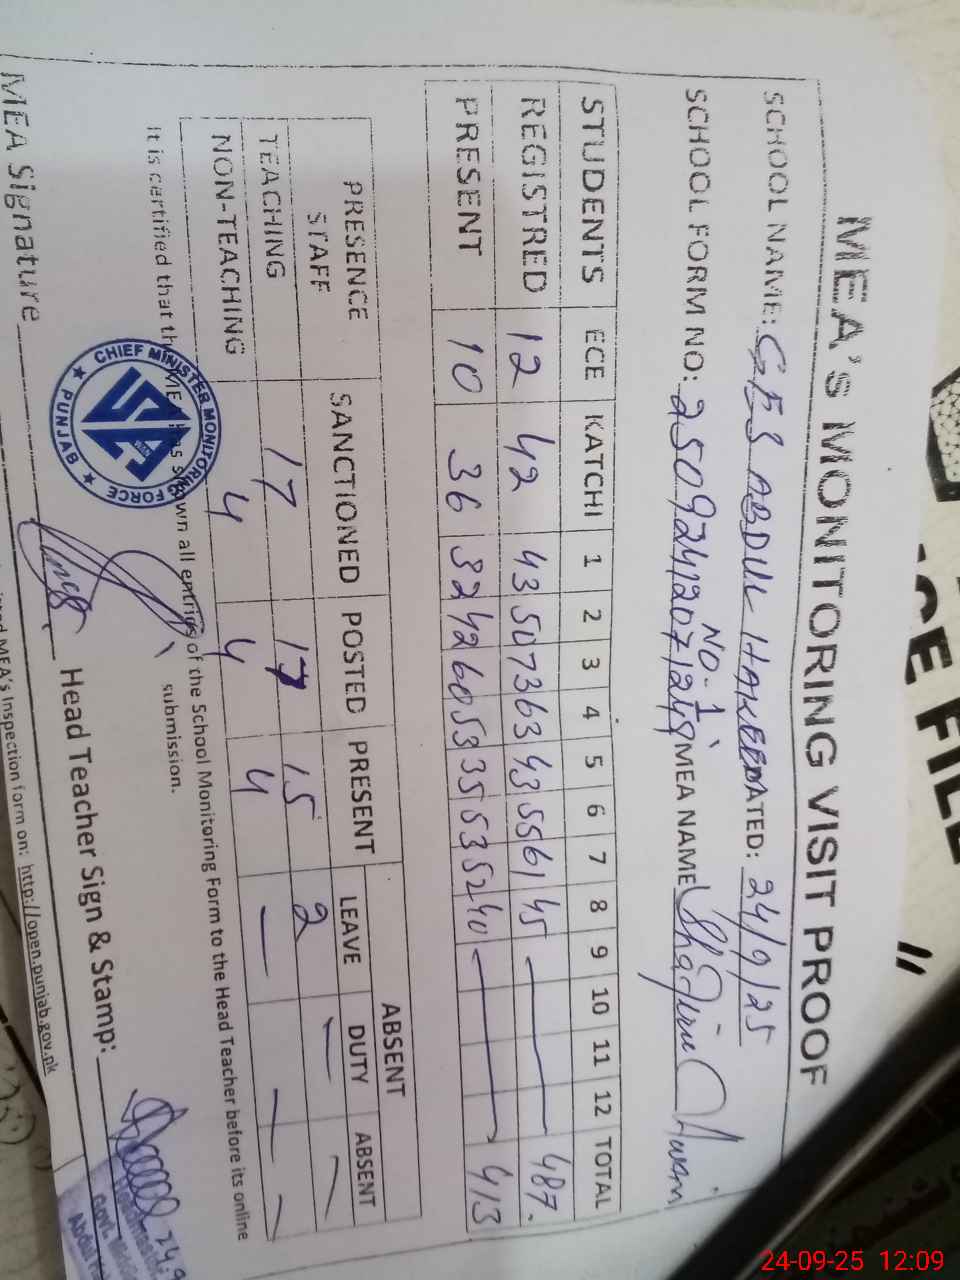 MEA'S MONITORING VISIT PROOF
SCHOOL NAME: GES ABDUL HAKEEM DATED: 24/9/25
NO. 1
SCHOOL FORM NO: 250924120712 MEA NAME
STUDENTS ECE KATCHI 1 2 3 4 5 6 7 8 9 10 11 12 TOTAL
REGISTRED 12 42 43 50 73 63 43 55 61 45 — 487.
PRESENT 10 36 32 42 60 53 35 53 52 40 — 413
ABSENT
PRESENCE STAFF SANCTIONED POSTED PRESENT LEAVE DUTY ABSENT
TEACHING 17 17 15 2 — —
NON-TEACHING 4 4 4 — — —
It is certified that the MEA has shown all entries of the School Monitoring Form to the Head Teacher before its online
submission.
CHIEF MINISTER MONITORING FORCE
PUNJAB
MEA Signature Head Teacher Sign & Stamp:
24.9
Govt.
MEA's Inspection form on: http://open.punjab.gov.pk
24-09-25 12:09